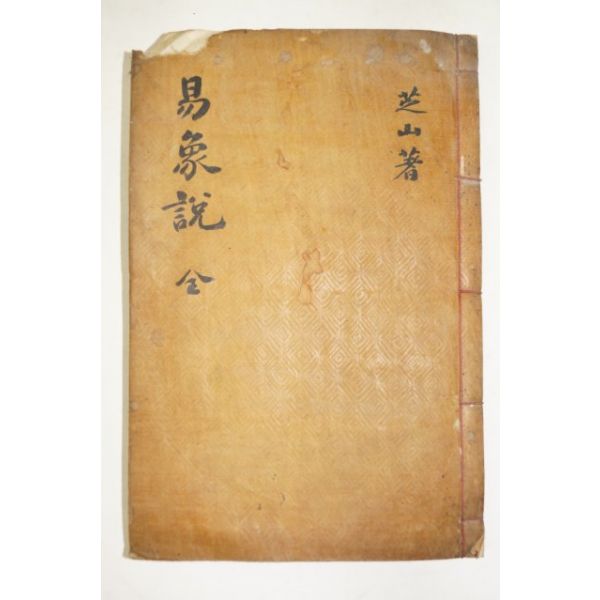 芝山著
易象說 全